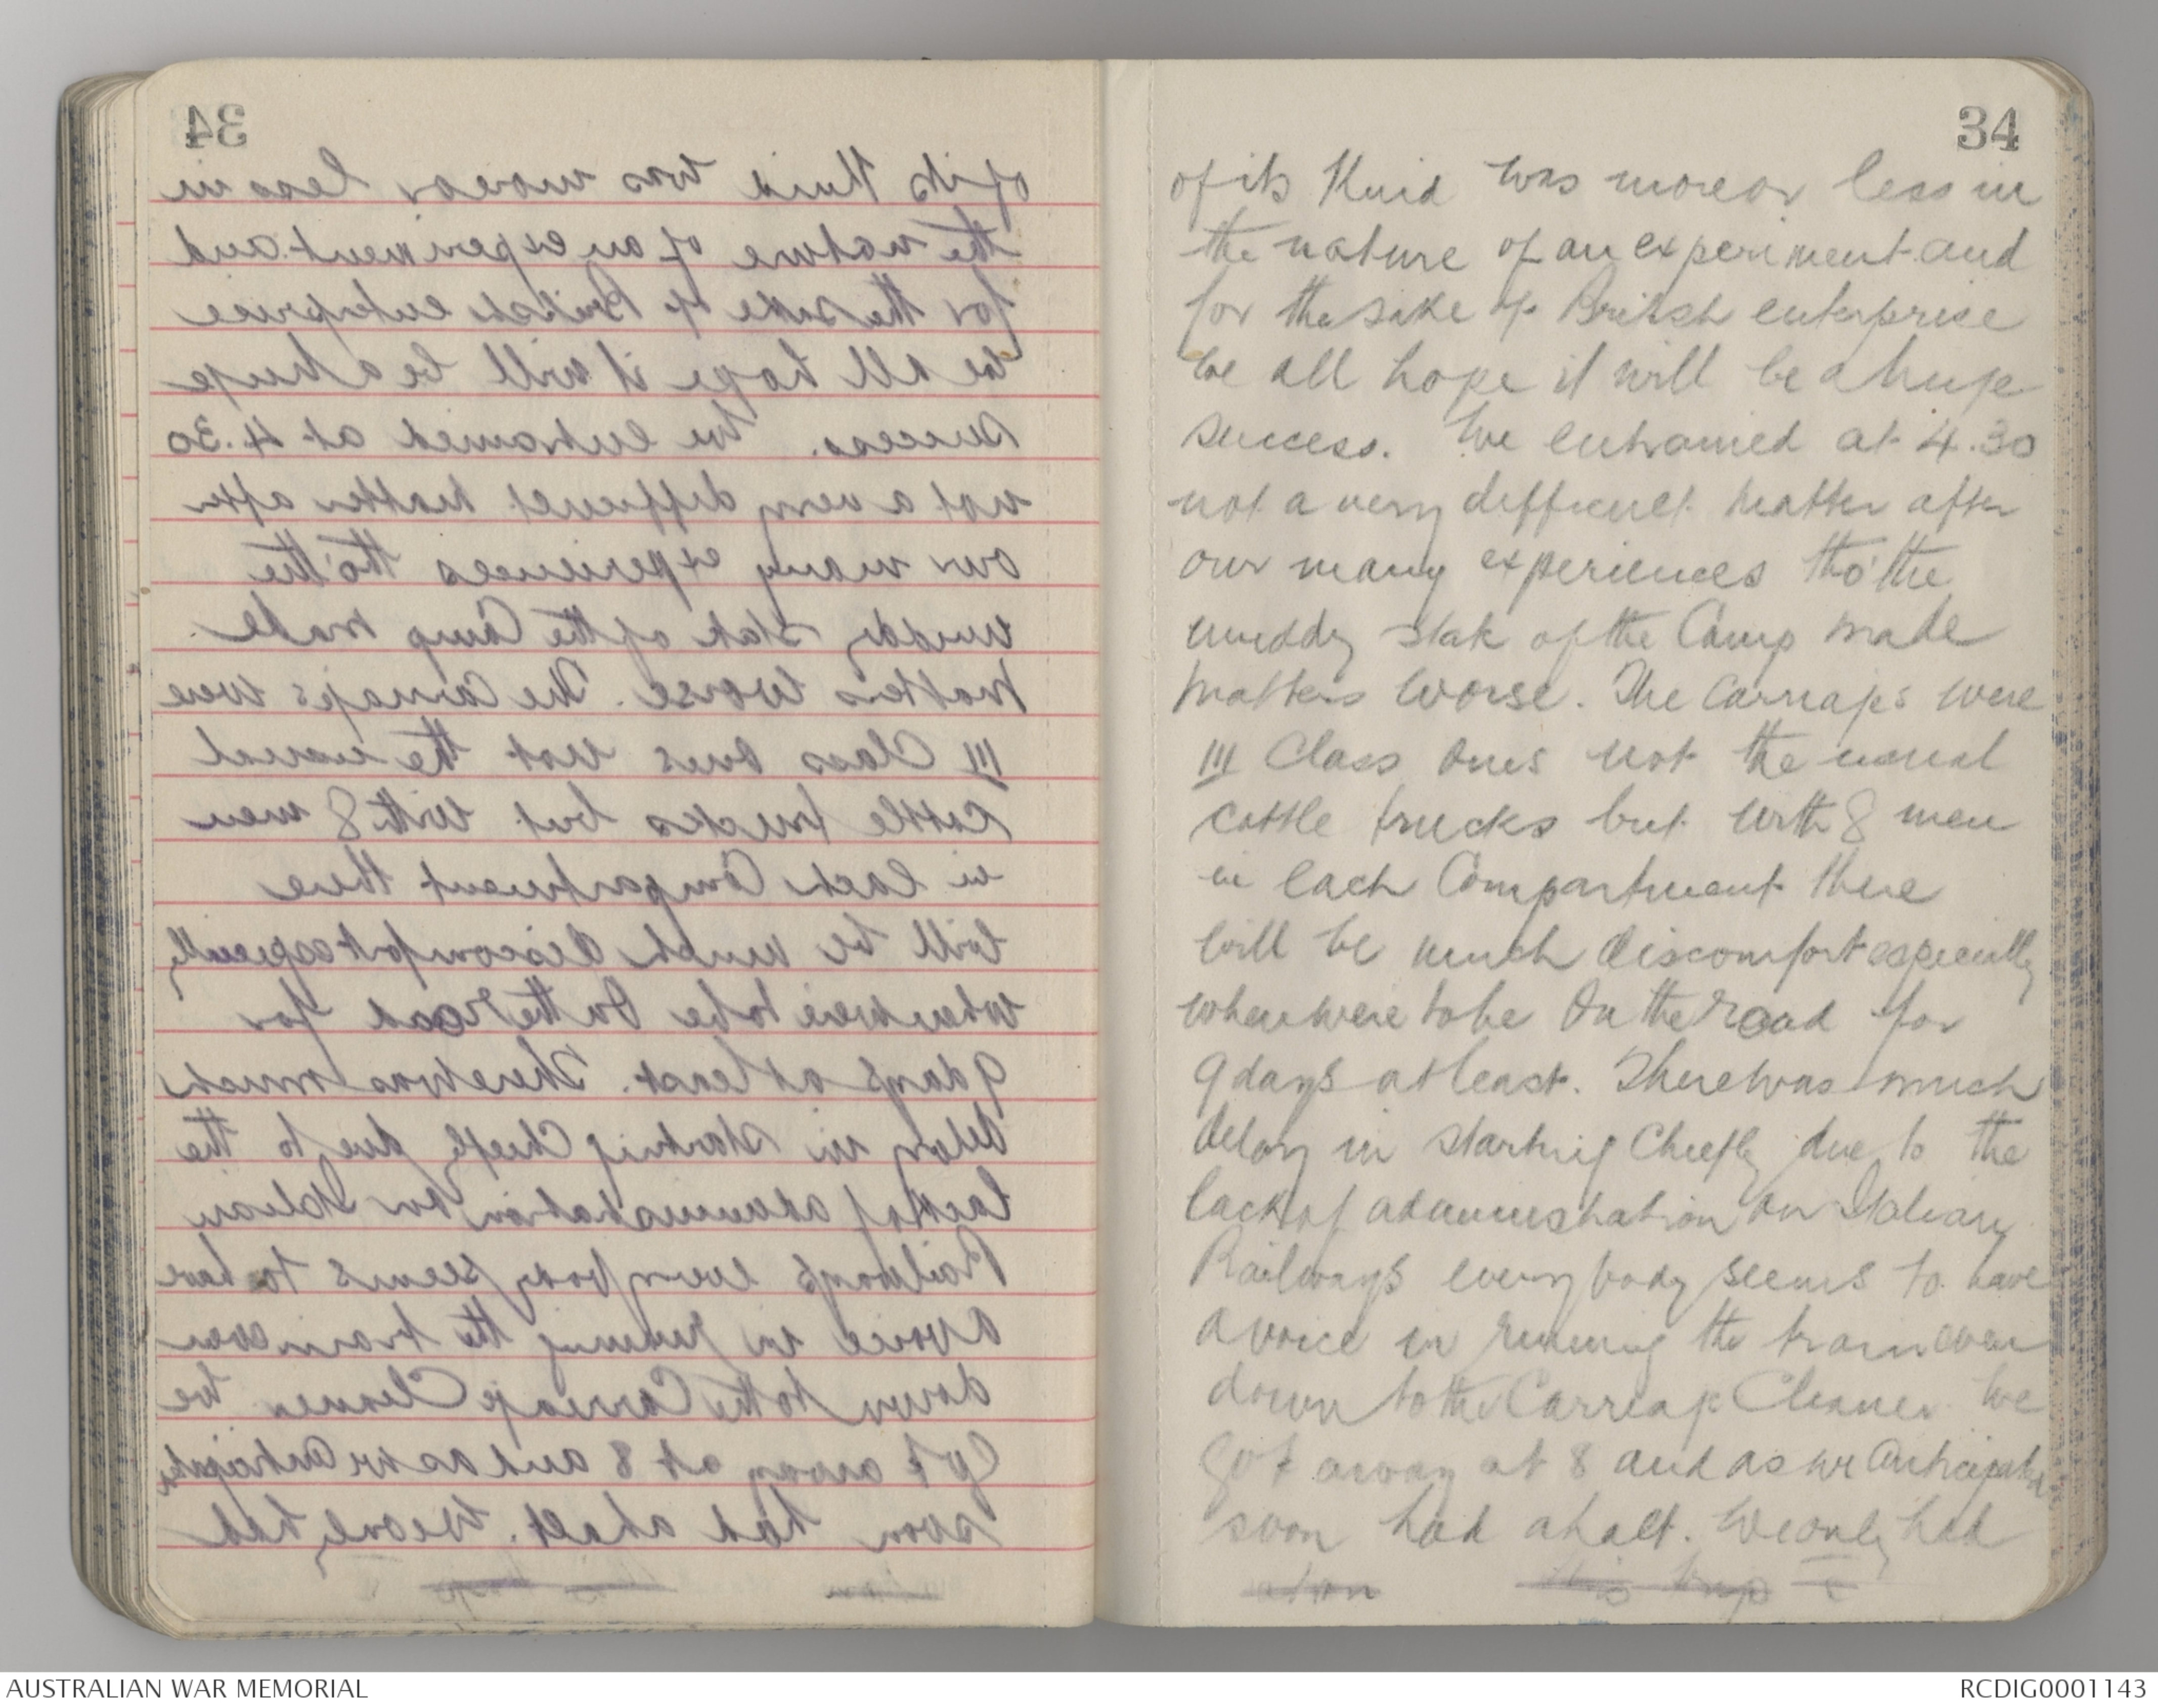 34
of its kind was more or less in
the nature of an experiment and
for the sake of British enterprise
we all hope it will be a huge
success. We entrained at 4.30
not a very difficult matter after
our many experiences tho' the
muddy state of the Camp made
matters worse. The carriages were
III Class ones not the usual
cattle trucks but with 8 men
in each Compartment there
will be much discomfort especially
when we're to be on the road for
9 days at least. There was much
delay in starting Chiefly due to the
lack of administration on Italian
Railways everybody seems to have
a voice in running the train even
down to the Carriage Cleaner. We
got away at 8 and as we anticipated
soon had a halt. We only had
this trip
AUSTRALIAN WAR MEMORIAL
RCDIG0001143